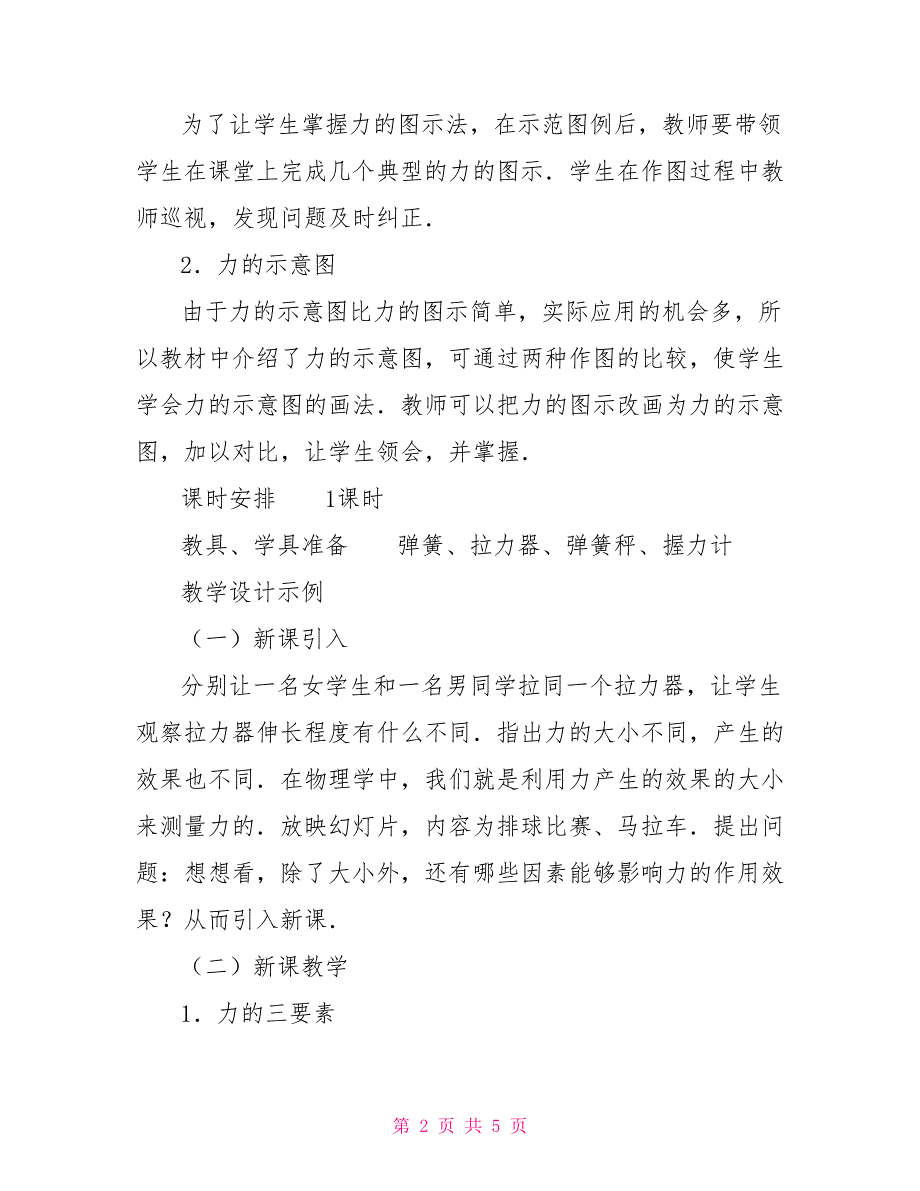 为了让学生掌握力的图示法，在示范图例后，教师要带领
学生在课堂上完成几个典型的力的图示．学生在作图过程中教
师巡视，发现问题及时纠正．
2．力的示意图
由于力的示意图比力的图示简单，实际应用的机会多，所
以教材中介绍了力的示意图，可通过两种作图的比较，使学生
学会力的示意图的画法．教师可以把力的图示改画为力的示意
图，加以对比，让学生领会，并掌握．
课时安排　　1课时
教具、学具准备　　弹簧、拉力器、弹簧秤、握力计
教学设计示例
（一）新课引入
分别让一名女学生和一名男同学拉同一个拉力器，让学生
观察拉力器伸长程度有什么不同．指出力的大小不同，产生的
效果也不同．在物理学中，我们就是利用力产生的效果的大小
来测量力的．放映幻灯片，内容为排球比赛、马拉车．提出问
题：想想看，除了大小外，还有哪些因素能够影响力的作用效
果？从而引入新课．
（二）新课教学
1．力的三要素
第 2 页 共 5 页